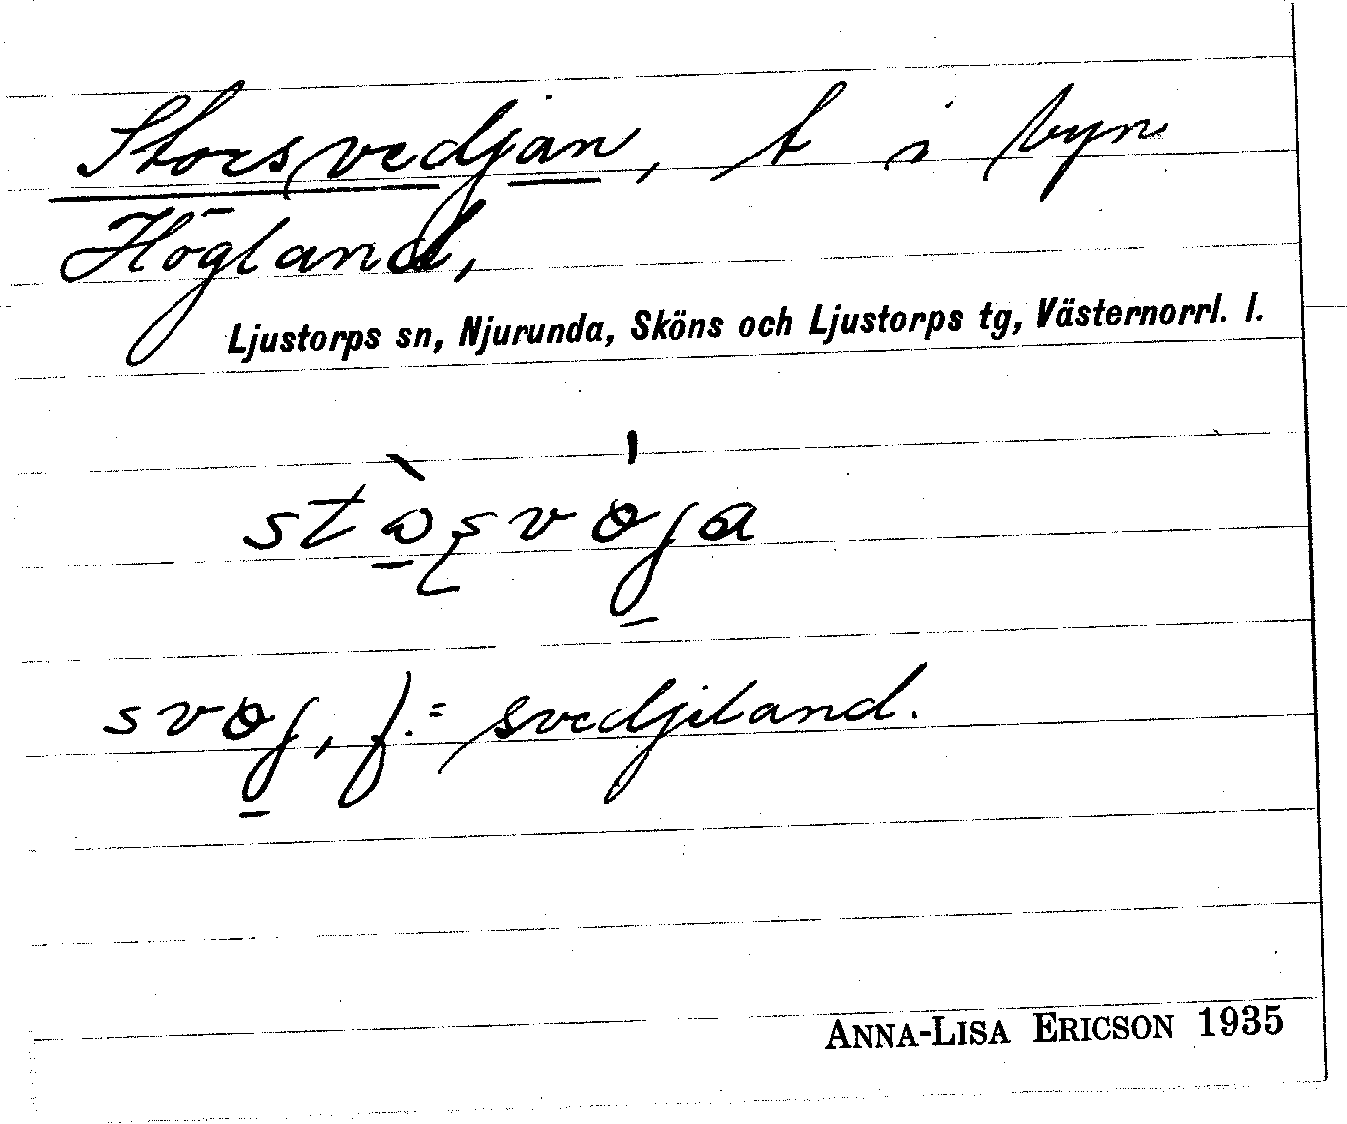 Storsvedjan, t i byn
Högland,
Ljustorps sn, Njurunda, Sköns och Ljustorps tg, Västernorrl. l.
svedjeland.
ANNA-LISA ERICSON 1935